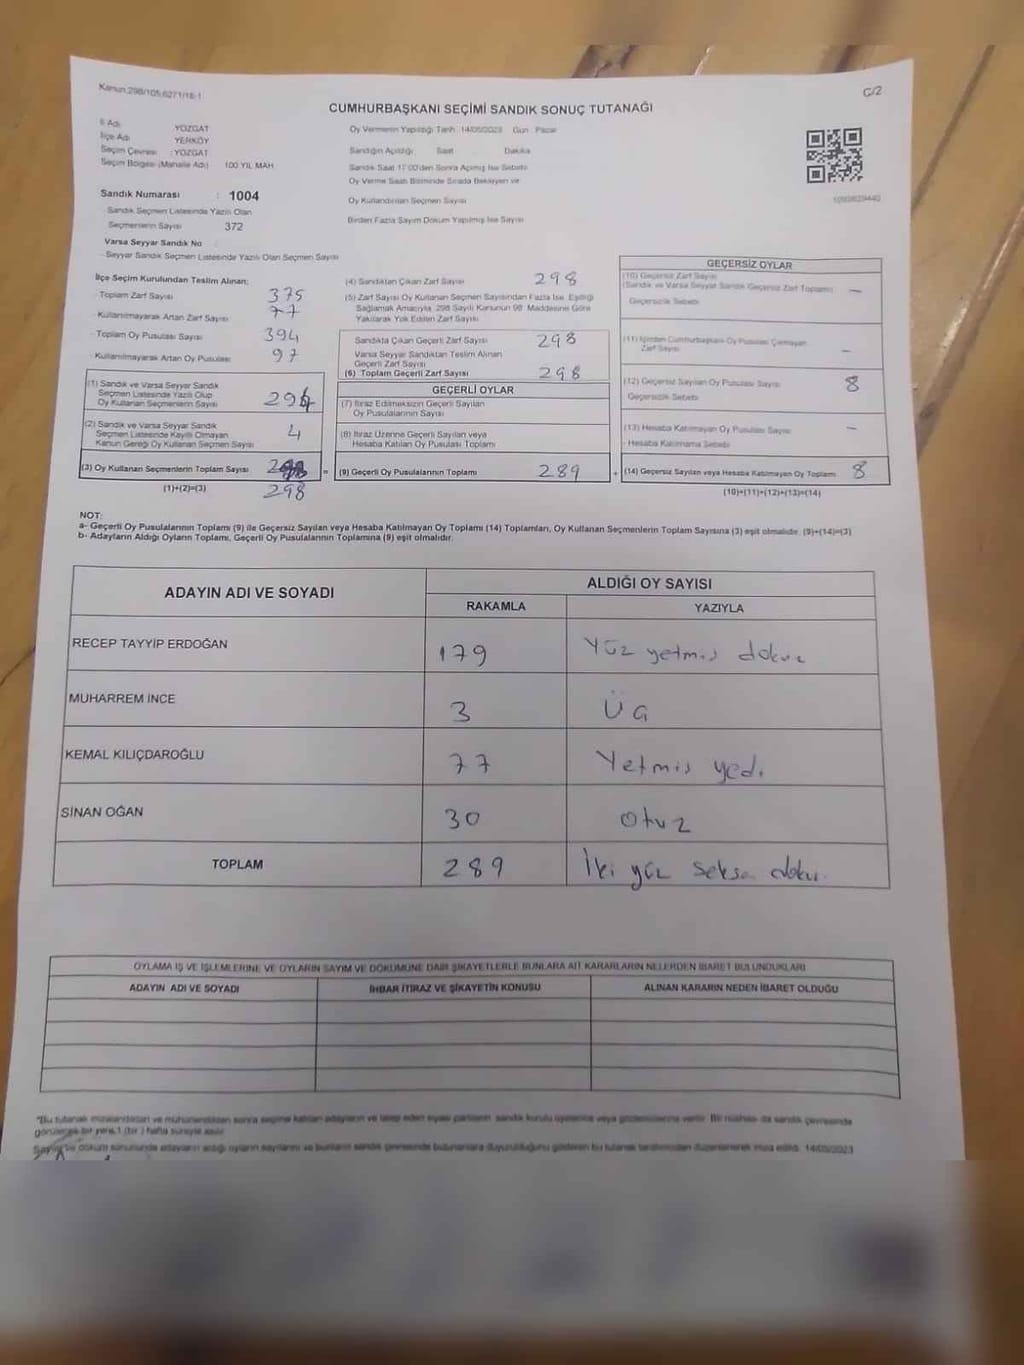 Kanun:298/105,6271/18-1
C/2
CUMHURBAŞKANI SEÇİMİ SANDIK SONUÇ TUTANAĞI
İl Adı YOZGAT
İlçe Adı YERKÖY
Seçim Çevresi : YOZGAT
Seçim Bölgesi (Mahalle Adı) 100 YIL MAH
Sandık Numarası : 1004
Sandık Seçmen Listesinde Yazılı Olan
Seçmenlerin Sayısı 372
Varsa Seyyar Sandık No
Seyyar Sandık Seçmen Listesinde Yazılı Olan Seçmen Sayısı
Oy Vermenin Yapıldığı Tarih 14/05/2023 Gün : Pazar
Sandığın Açıldığı Saat Dakika
Sandık Saat 17:00'den Sonra Açılmış İse Sebebi
Oy Verme Saati Bitiminde Sırada Bekleyen ve
Oy Kullandırılan Seçmen Sayısı
Birden Fazla Sayım Döküm Yapılmış İse Sayısı
İlçe Seçim Kurulundan Teslim Alınan;
- Toplam Zarf Sayısı 375
- Kullanılmayarak Artan Zarf Sayısı 77
- Toplam Oy Pusulası Sayısı 394
- Kullanılmayarak Artan Oy Pusulası 97
(1) Sandık ve Varsa Seyyar Sandık
Seçmen Listesinde Yazılı Olup
Oy Kullanan Seçmenlerin Sayısı 294
(2) Sandık ve Varsa Seyyar Sandık
Seçmen Listesinde Kayıtlı Olmayan
Kanun Gereği Oy Kullanan Seçmen Sayısı 4
(3) Oy Kullanan Seçmenlerin Toplam Sayısı
(1)+(2)=(3) 298
(4) Sandıktan Çıkan Zarf Sayısı 298
(5) Zarf Sayısı Oy Kullanan Seçmen Sayısından Fazla İse, Eşitliği
Sağlamak Amacıyla, 298 Sayılı Kanunun 98. Maddesine Göre
Yakılarak Yok Edilen Zarf Sayısı
Sandıkta Çıkan Geçerli Zarf Sayısı 298
Varsa Seyyar Sandıktan Teslim Alınan
Geçerli Zarf Sayısı
(6) Toplam Geçerli Zarf Sayısı 298
GEÇERLİ OYLAR
(7) İtiraz Edilmeksizin Geçerli Sayılan
Oy Pusulalarının Sayısı
(8) İtiraz Üzerine Geçerli Sayılan veya
Hesaba Katılan Oy Pusulası Toplamı
= (9) Geçerli Oy Pusulalarının Toplamı 289
GEÇERSİZ OYLAR
(10) Geçersiz Zarf Sayısı
(Sandık ve Varsa Seyyar Sandık Geçersiz Zarf Toplamı) —
Geçersizlik Sebebi
(11) İçinden Cumhurbaşkanı Oy Pusulası Çıkmayan
Zarf Sayısı —
(12) Geçersiz Sayılan Oy Pusulası Sayısı 8
Geçersizlik Sebebi
(13) Hesaba Katılmayan Oy Pusulası Sayısı —
- Hesaba Katılmama Sebebi
+ (14) Geçersiz Sayılan veya Hesaba Katılmayan Oy Toplamı 8
(10)+(11)+(12)+(13)=(14)
NOT:
a- Geçerli Oy Pusulalarının Toplamı (9) ile Geçersiz Sayılan veya Hesaba Katılmayan Oy Toplamı (14) Toplamları, Oy Kullanan Seçmenlerin Toplam Sayısına (3) eşit olmalıdır. (9)+(14)=(3)
b- Adayların Aldığı Oyların Toplamı, Geçerli Oy Pusulalarının Toplamına (9) eşit olmalıdır.
ADAYIN ADI VE SOYADI
ALDIĞI OY SAYISI
RAKAMLA YAZIYLA
RECEP TAYYİP ERDOĞAN 179 Yüz yetmiş dokuz
MUHARREM İNCE 3 Üç
KEMAL KILIÇDAROĞLU 77 Yetmiş yedi
SİNAN OĞAN 30 Otuz
TOPLAM 289 İki yüz seksen dokuz
OYLAMA İŞ VE İŞLEMLERİNE VE OYLARIN SAYIM VE DÖKÜMÜNE DAİR ŞİKAYETLERLE BUNLARA AİT KARARLARIN NELERDEN İBARET BULUNDUKLARI
ADAYIN ADI VE SOYADI İHBAR İTİRAZ VE ŞİKAYETİN KONUSU ALINAN KARARIN NEDEN İBARET OLDUĞU
"Bu tutanak imzalandıktan ve mühürlendikten sonra seçime katılan adayların ve talep eden siyasi partilerin sandık kurulu üyelerine veya gözlemcilerine verilir. Bir nüshası da sandık çevresinde
görülecek bir yere 1 (bir) hafta süreyle asılır.
Sayım ve döküm sonunda adayların aldığı oyların sayılarını ve bunların sandık çevresinde bulunanlara duyurulduğunu gösteren bu tutanak tarafımızdan düzenlenerek imza edildi. 14/05/2023